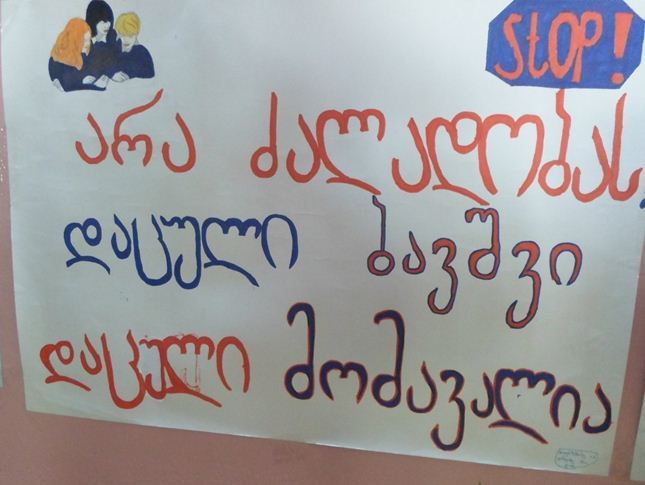 STOP!
არა ძალადობას
დაცული ბავშვი
დაცული მომავალია